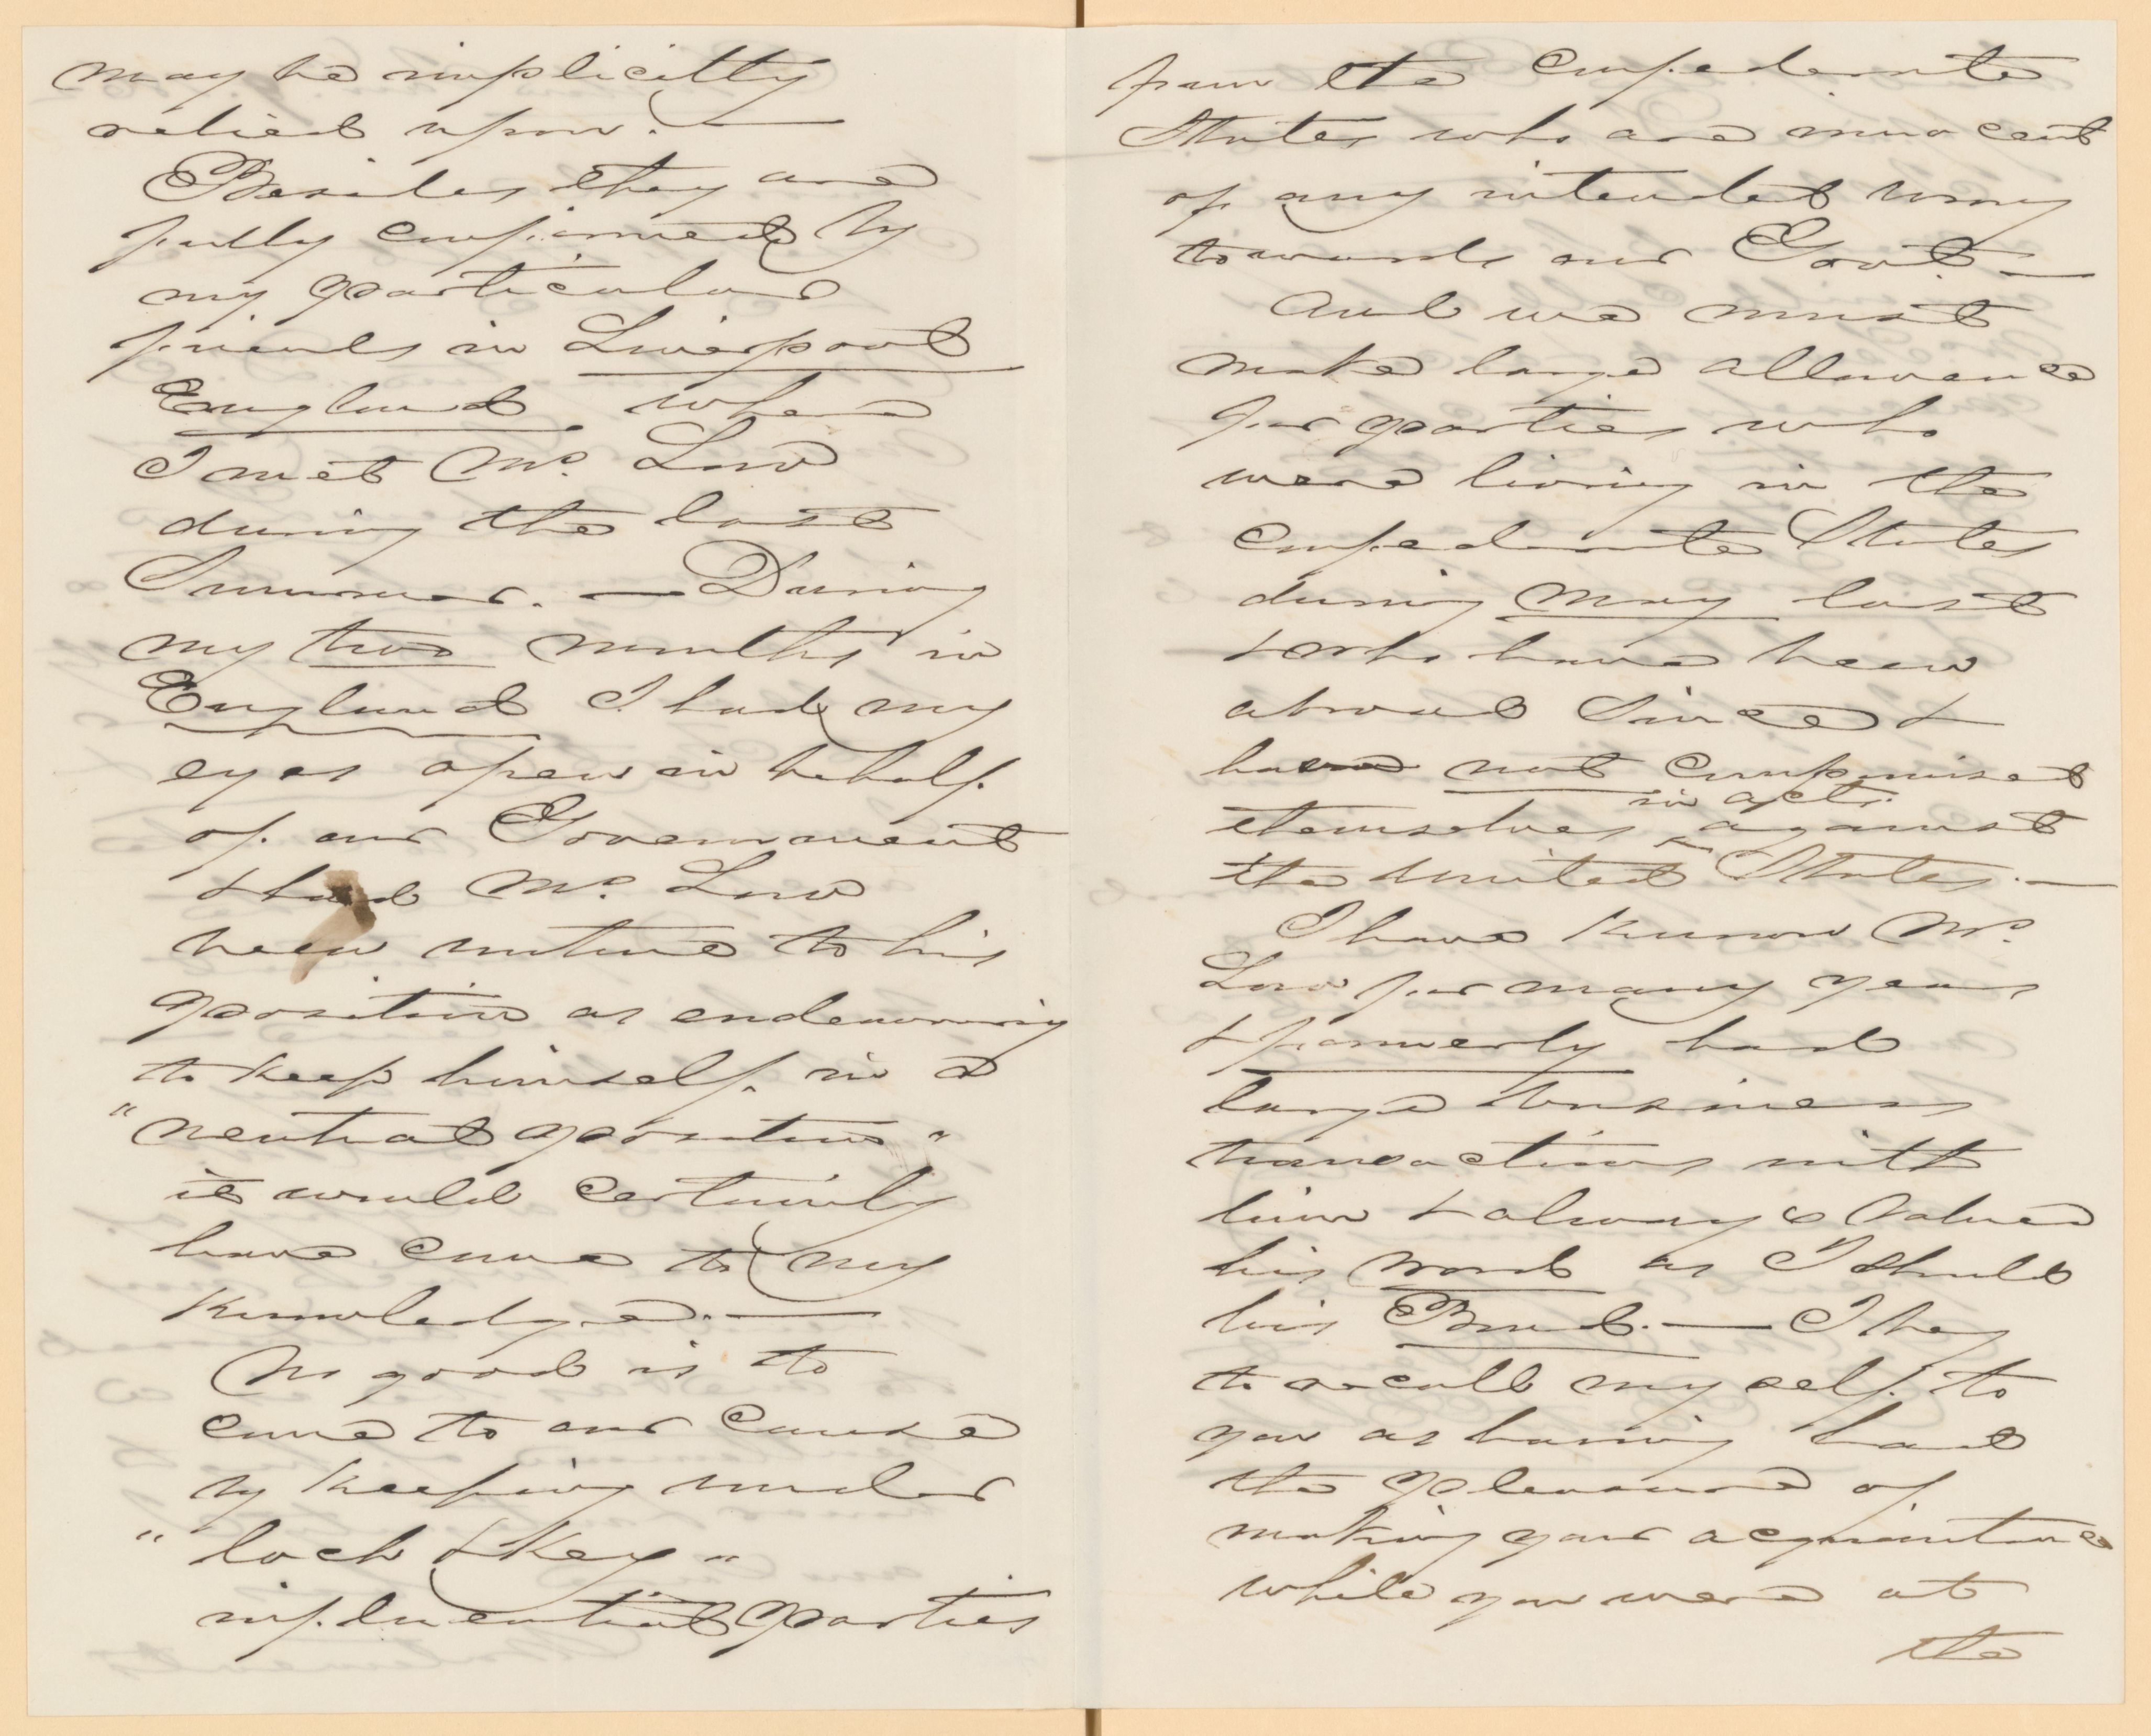 may be implicitly
relied upon. —
Besides they are
fully confirmed by
my particular
friends in Liverpool
England, where
I met Mr. Low
during the last
Summer. — During
my two months in
England I had my
eyes open in behalf
of our Government
& had Mr. Low
been untrue to his
position as endeavoring
to keep himself in a
"neutral position"
it would certainly
have come to my
knowledge. —
No good is to
come to our cause
by keeping under
"lock & key"
influential parties
from the Confederate
States who are innocent
of any intended wrong
towards our Govt. —
And we must
make large allowance
for parties who
were living in the
Confederate States
during May last
& who have been
abroad since &
have not compromised
in acts
themselves ^ against
the United States. —
I have known Mr.
Low for many years
& formerly had
large business
transactions with
him & always valued
his word as I should
his Bond. — I beg
to recall myself to
you as having had
the pleasure of
making your acquaintance
while you were at
the